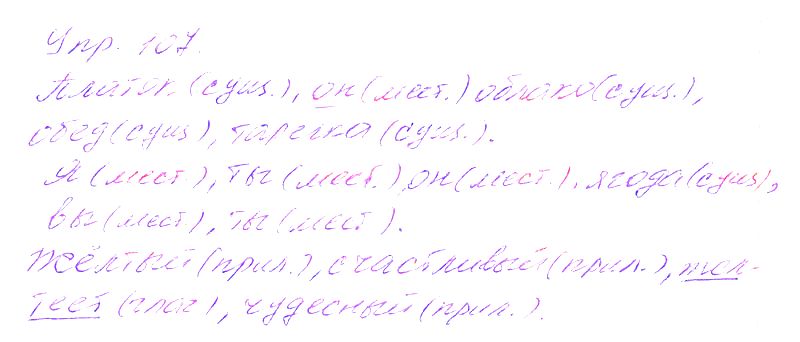 Упр. 107.
Платок (сущ.), он (мест.) облако (сущ.),
обед (сущ), тарелка (сущ.).
Я (мест.), ты (мест.) он (мест.), ягода (сущ),
вы (мест), ты (мест).
Жёлтый (прил.), счастливый (прил.), жел-
теет (глаг), чудесный (прил.).